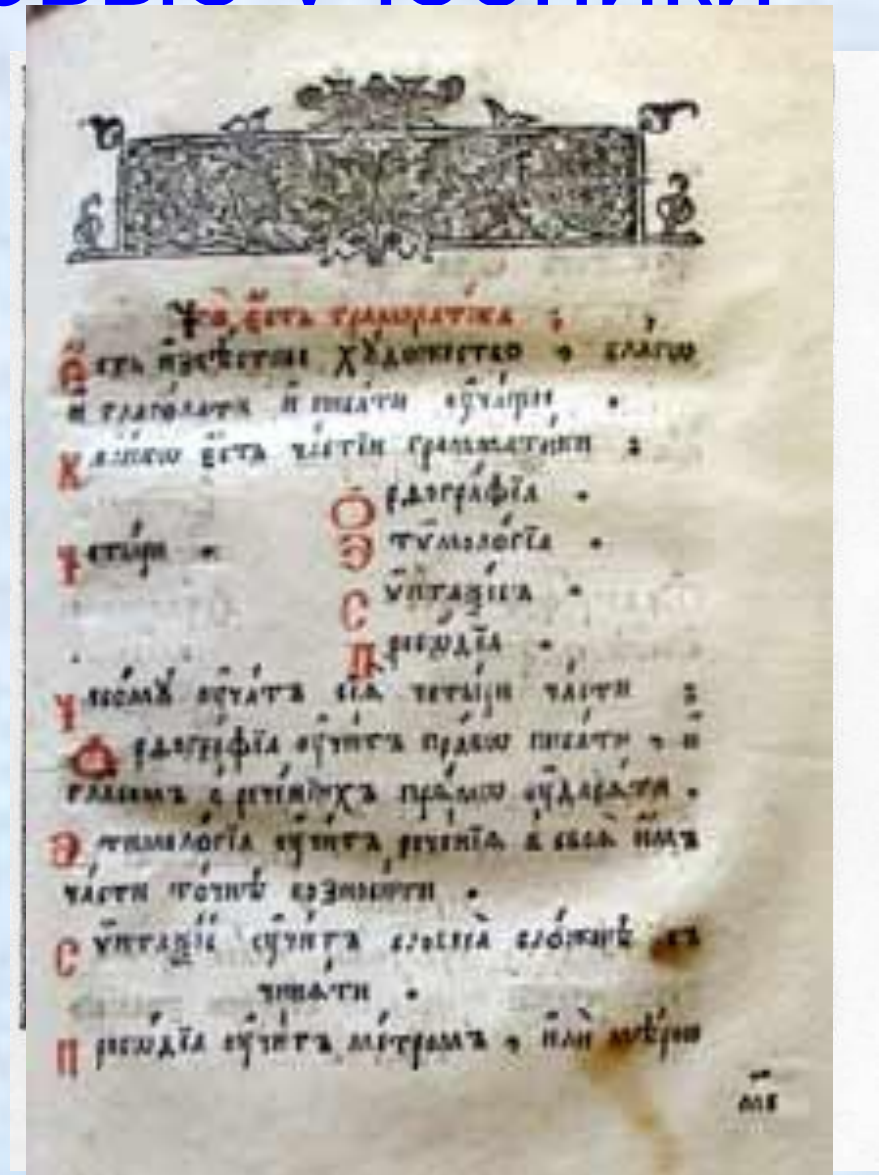 УЧЕБНИКИ
Что̀ є҆́сть грамматі́ка ;
Є҆́сть и҆звѣ́стное хꙋдо́жество , благѡ
и҆ глаго́лати и҆ писа́ти ᲂу҆ча́щее .
Коли́кѡ є҆́сть часті́й грамма́тики ;
Ѻ҆рѳогра́фїа .
Четы́ри . Э҆тѷмоло́гїа .
Сѷ́нтаѯїсъ .
Просѡ́дїа .
Чесомꙋ̀ ᲂу҆ча́тъ сїѧ̑ четы́ри ча́сти ;
Ѻ҆рѳогра́фїа ᲂу҆чи́тъ пра́вѡ писа́ти , и҆
гла́сомъ в рече́нїихъ прѧ́мѡ ᲂу҆дарѧ́ти .
Э҆тимоло́гїа ᲂу҆чи́тъ рече́нїѧ в своѧ̀ и҆̀мъ
ча́сти то́чнѣ возноси́ти .
Сѷ́нтаѯїс ᲂу҆чи́тъ словеса̀ сло́жнѣ съ
чинѧ́ти .
Просѡ́дїа ᲂу҆чи́тъ ме́тромъ , и҆лѝ мѣ́рою